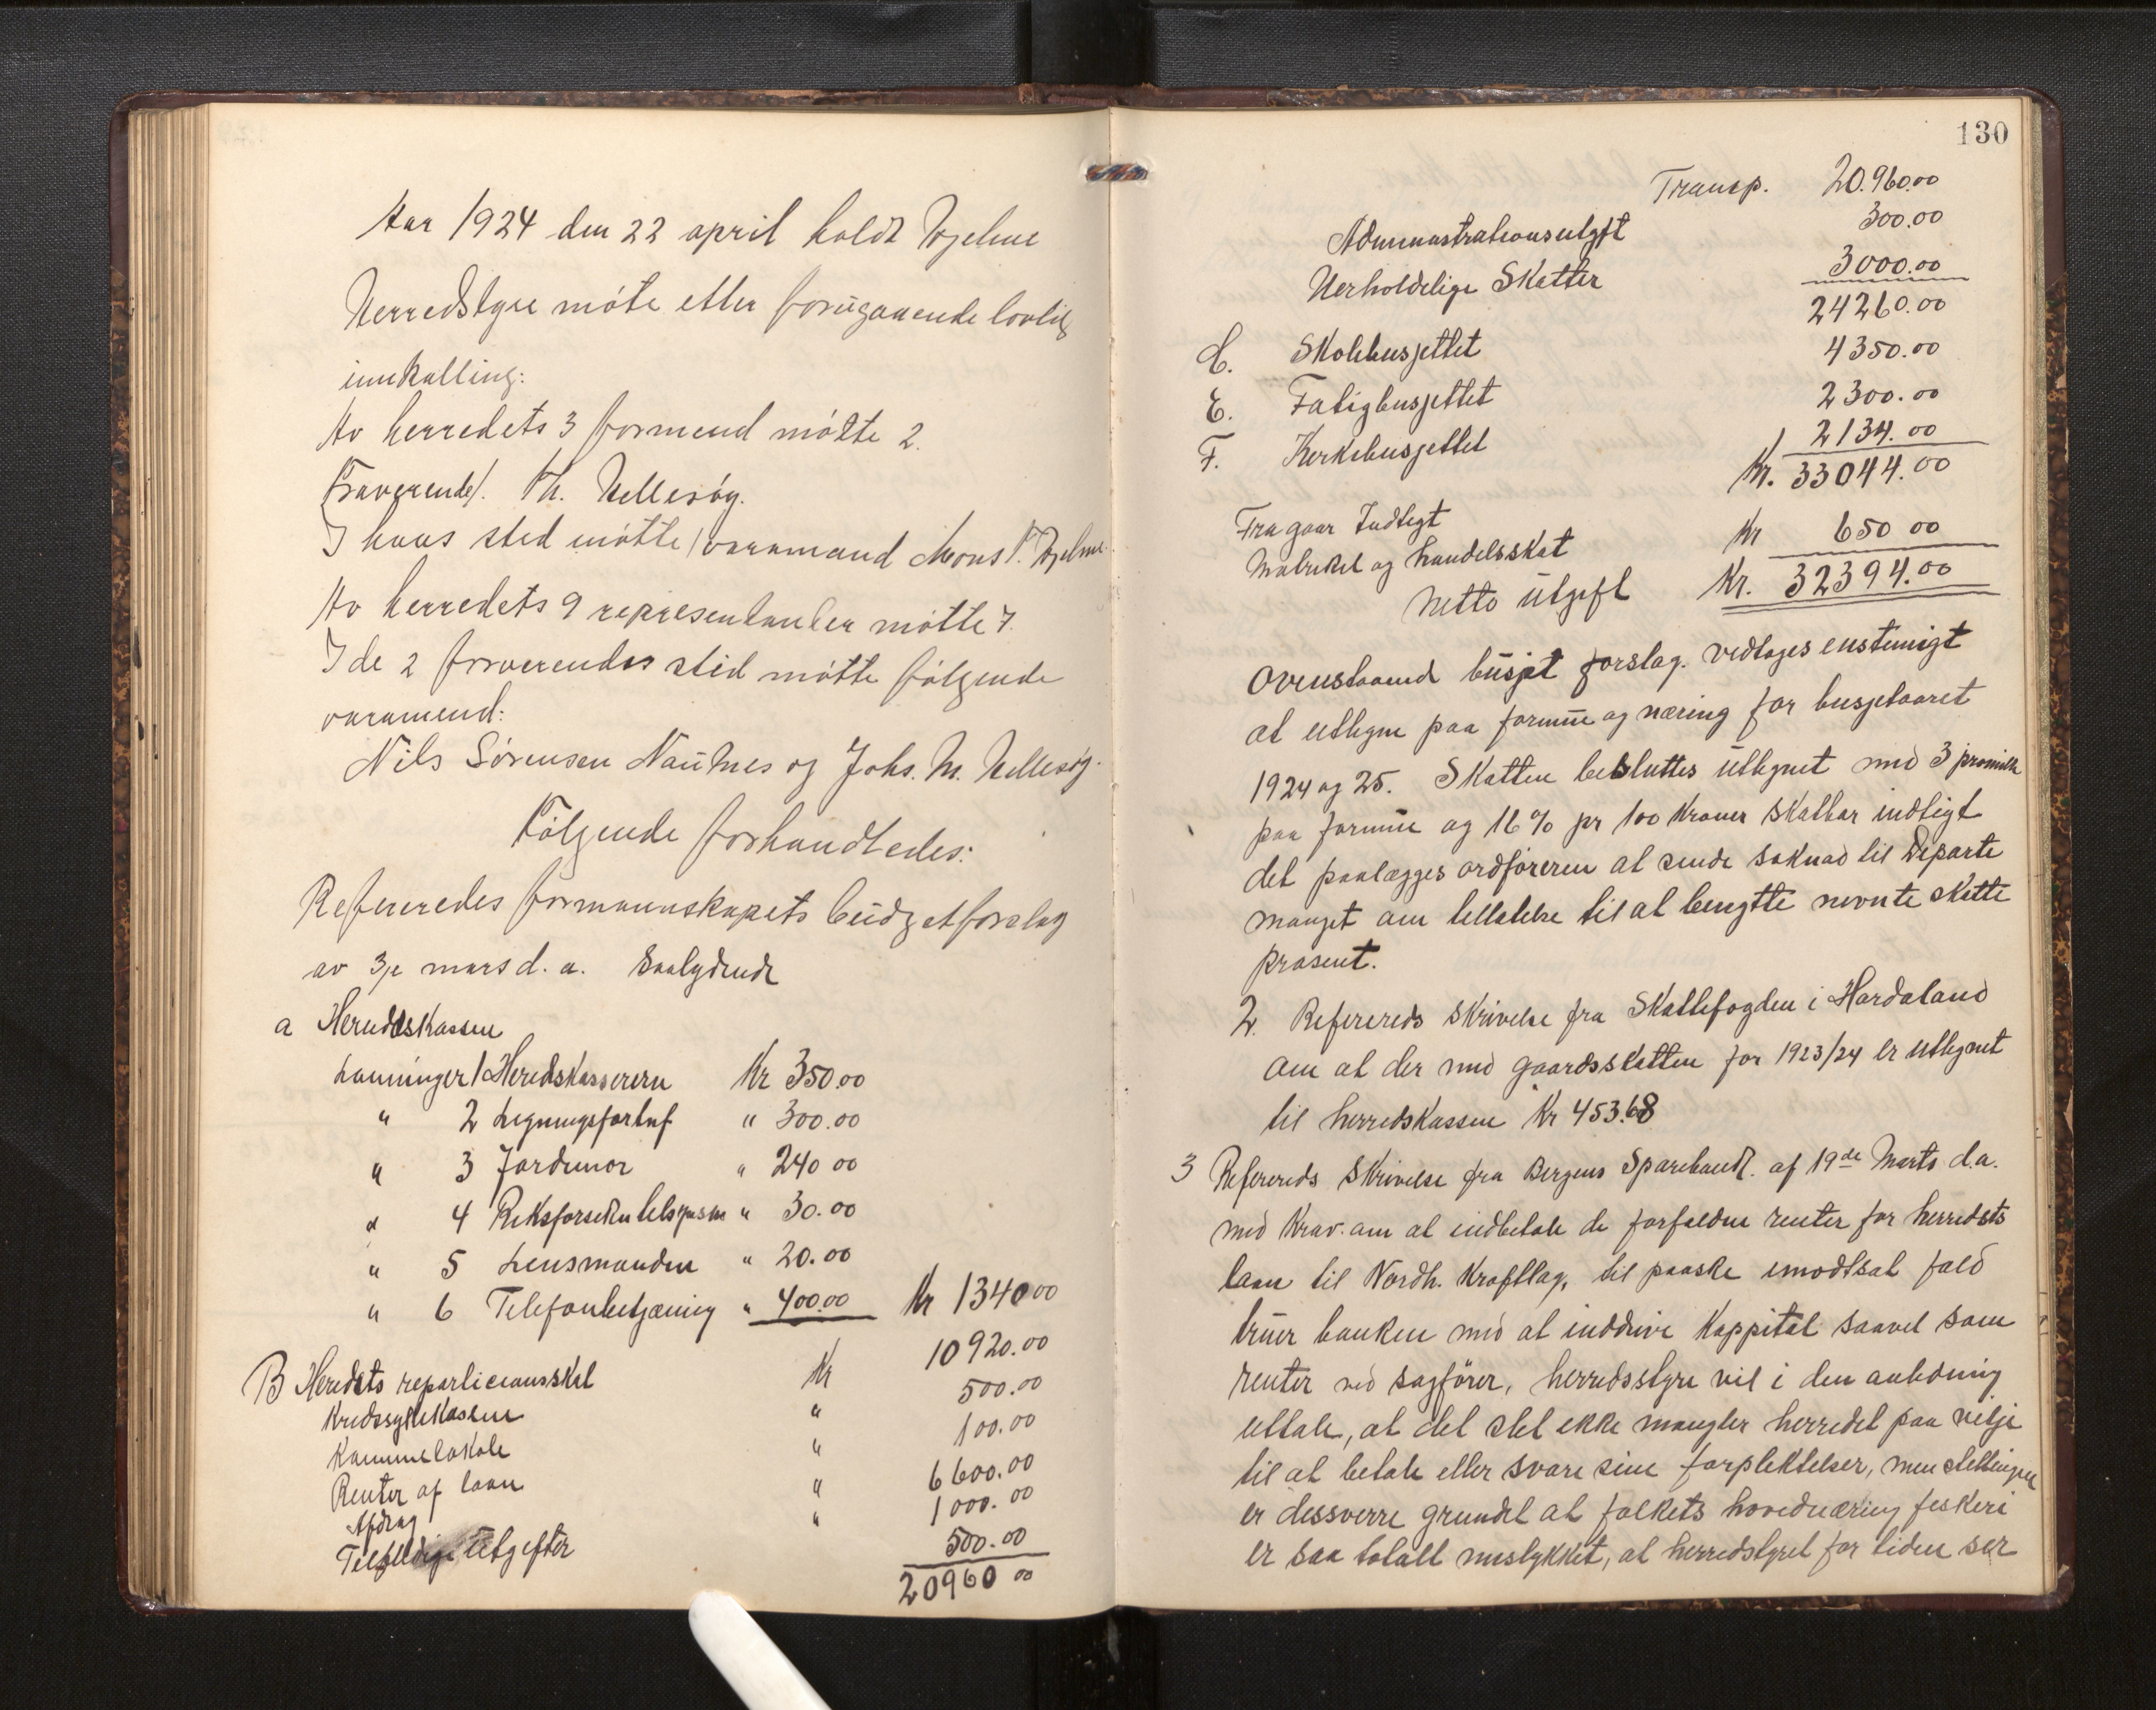 Aar 1924 den 22 april holdt Hjelme
Herredstyre möte etter forugaaende lovlig
innkalling:
Av herredets 3 formend mötte 2.
Fraverende/. Th. Hellesöy.
I hans sted mötte varamand Mons T. Hjelme.
Av herredets 9 representanter mötte 7.
I de 2 fraverendes sted mötte fölgende
varamend:
Nils Sörensen Nautnes og Johs. M. Hellesöy.
Fölgende forhandledes:
Refereredes formannskapets budgetforslag
av 3je mars d. a. Saalydende
a Heredskassen
Lönninger 1 Heredskassereren Kr 350.00
" 2 Legningsforhuf " 300.00
" 3 Jordemor " 240 00
" 4 Reksforsekrletsgasm " 30.00
" 5 Lensmanden " 20.00
" 6 Telefonbetjæning " 400.00 Kr 1340 00
B Heredets reparticionsskat Kr 10920.00
Kredssykekassen " 500.00
Kommunelokale " 100.00
Renter af laan " 6600.00
Afdrag " 1000.00
Telfeldige Utgefter 500.00
20960 00
130
Transp. 20.960.00
Admenastrationsutgft 300.00
Uerholdelige Skatter 3000.00
24260.00
C. Skolebusjettet 4350.00
E. Fatigbusjettet 2300.00
F. Kerkebusjettet 2134.00
Kr. 33044.00
Fra gaar Indtegt
Matrikel og handelsskat Kr 650 00
Netto utgeft Kr. 32394.00
Ovenstaaend busjet forslag. vedtages enstemigt
at utlegne paa formue og næring for busjetaaret
1924 og 25. Skatten besluttes utlegnet med 3 promille
paa formue og 16% pr 100 Kroner Skatbar indtegt
det paalægges ordföreren at sende söknad til Departe
manget om tellatelse til at benytte nevnte skatte
prosent.
2. Referereds Skrivelse fra Skattefogden i Hordaland
om at der med gaardsskatten for 1923/24 er utlegnet
til herredskassen Kr 453.68
3 Referereds Skrivelse fra Bergens Sparebank. af 19de Marts d.a.
med Krav. om at indbetale de forfaldne renter for herredets
laan til Nordh. Kraftlag, til paaske imodtsat fald
truer banken med at inddrive Kappital saavel som
renter ved sagförer, herredsstyre vil i den anledning
uttale, at det slet ekke mangler herredet paa velje
til at betale eller svare sine forplektelser, men stellingen
er dessverre grundet at folkets hovednæring feskeri
er saa totalt meslykket, at herredstyret for tiden ser